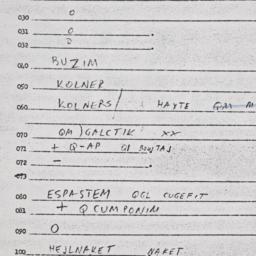 030 0
031 0
032 0
040 BUZIM
050 KOLNER
060 KOLNERS/ HAYTE
070 QM)GALCTIK XX
071 + Q-AP
072 -
073
080 ESPASTEM QGL CUGEFIT
081 + QCUMPONIM
090 0
100 HEJLNAKET NAKET